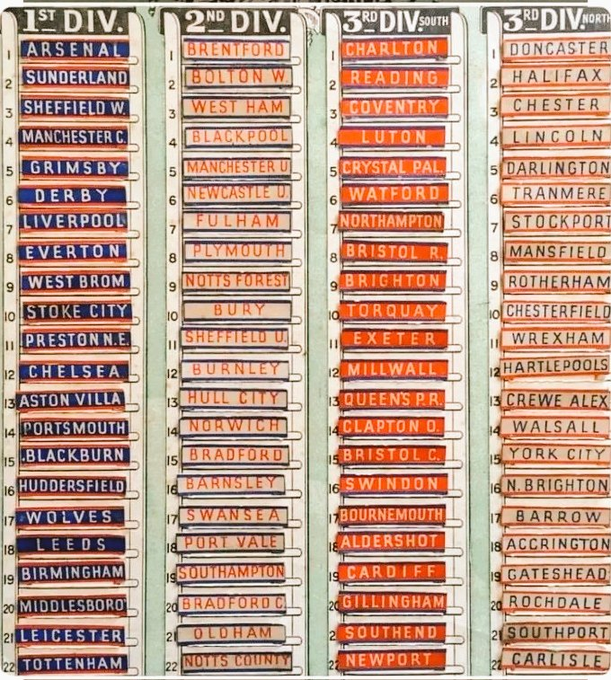 1ST DIV.
1 ARSENAL
2 SUNDERLAND
3 SHEFFIELD W.
4 MANCHESTER C.
5 GRIMSBY
6 DERBY
7 LIVERPOOL
8 EVERTON
9 WEST BROM
10 STOKE CITY
11 PRESTON N.E.
12 CHELSEA
13 ASTON VILLA
14 PORTSMOUTH
15 BLACKBURN
16 HUDDERSFIELD
17 WOLVES
18 LEEDS
19 BIRMINGHAM
20 MIDDLESBORO'
21 LEICESTER
22 TOTTENHAM
2ND DIV.
1 BRENTFORD
2 BOLTON W.
3 WEST HAM
4 BLACKPOOL
5 MANCHESTER U.
6 NEWCASTLE U.
7 FULHAM
8 PLYMOUTH
9 NOTTS FOREST
10 BURY
11 SHEFFIELD U.
12 BURNLEY
13 HULL CITY
14 NORWICH
15 BRADFORD
16 BARNSLEY
17 SWANSEA
18 PORT VALE
19 SOUTHAMPTON
20 BRADFORD C.
21 OLDHAM
22 NOTTS COUNTY
3RD DIV. SOUTH
1 CHARLTON
2 READING
3 COVENTRY
4 LUTON
5 CRYSTAL PAL.
6 WATFORD
7 NORTHAMPTON
8 BRISTOL R.
9 BRIGHTON
10 TORQUAY
11 EXETER
12 MILLWALL
13 QUEEN'S P.R.
14 CLAPTON O.
15 BRISTOL C.
16 SWINDON
17 BOURNEMOUTH
18 ALDERSHOT
19 CARDIFF
20 GILLINGHAM
2 SOUTHEND
22 NEWPORT
3RD DIV. NORTH
1 DONCASTER
2 HALIFAX
3 CHESTER
4 LINCOLN
5 DARLINGTON
6 TRANMERE
7 STOCKPOR
8 MANSFIELD
9 ROTHERHAM
10 CHESTERFIELD
11 WREXHAM
12 HARTLEPOOLS
13 CREWE ALEX
14 WALSALL
15 YORK CITY
16 N. BRIGHTON
17 BARROW
18 ACCRINGTON
19 GATESHEAD
20 ROCHDALE
21 SOUTHPORT
22 CARLISLE